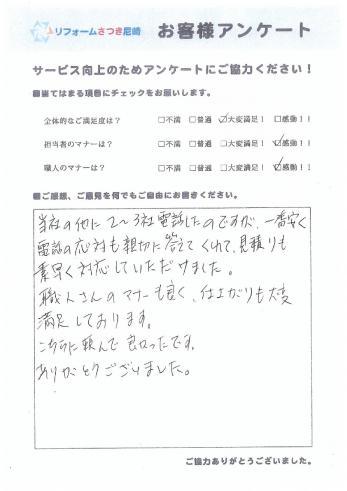 リフォームさつき尼崎 お客様アンケート
サービス向上のためアンケートにご協力ください！
■当てはまる項目にチェックをお願いします。
全体的なご満足度は？ □不満 □普通 ☑大変満足！ □感動！！
担当者のマナーは？ □不満 □普通 □大変満足！ ☑感動！！
職人のマナーは？ □不満 □普通 □大変満足！ ☑感動！！
■ご感想、ご意見を何でもご自由にお書きください。
当社の他に2〜3社電話したのですが、一番安く
電話の応対も親切に答えてくれて、見積りも
素早く対応していただけました。
職人さんのマナーも良く、仕上がりも大変
満足しております。
こちらに頼んで良かったです。
ありがとうございました。
ご協力ありがとうございました。